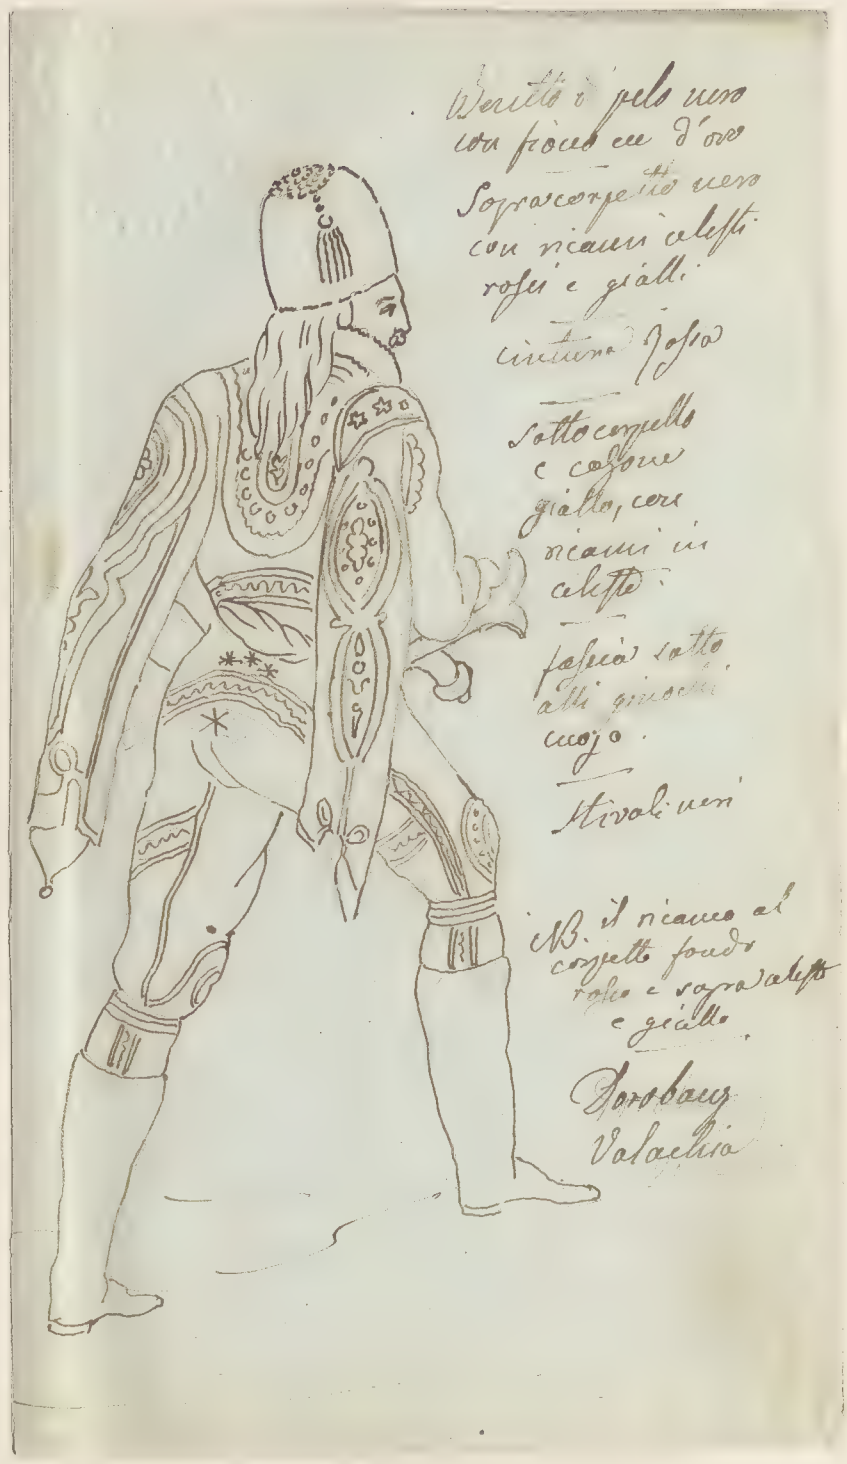 Beretto i pelo nero
con fiocco d'oro
Sopracorpetto nero
con ricami celesti
rossi e gialli
cintura Rossa
sottocorpetto
e calzone
giallo, con
ricami in
celeste
fascia sotto
alli ginocchi
cuojo.
Stivali neri
NB. il ricamo al
corpetto fondo
rosso e sopra celeste
e giallo
Dorobanz
Valachia